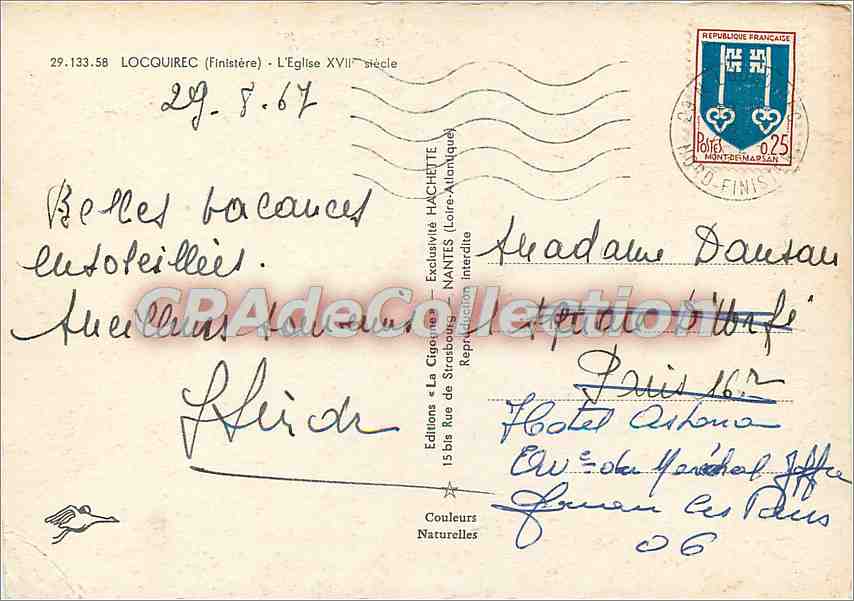 29.133.58 LOCQUIREC (Finistère) - L'Eglise XVIIme siècle
29.8.67
Belles vacances
ensoleillées.
Meilleurs souvenirs
Editions « La Cigogne » — Exclusivité HACHETTE
15 bis Rue de Strasbourg — NANTES (Loire-Atlantique)
Reproduction Interdite
Couleurs
Naturelles
REPUBLIQUE FRANÇAISE
POSTES 0,25
MONT-DE-MARSAN
NORD-FINISTERE
Madame Dansan
Square
Paris 16
Hotel Astoria
Ave du Maréchal Joffre
les Pins
06
CPAdeCollection